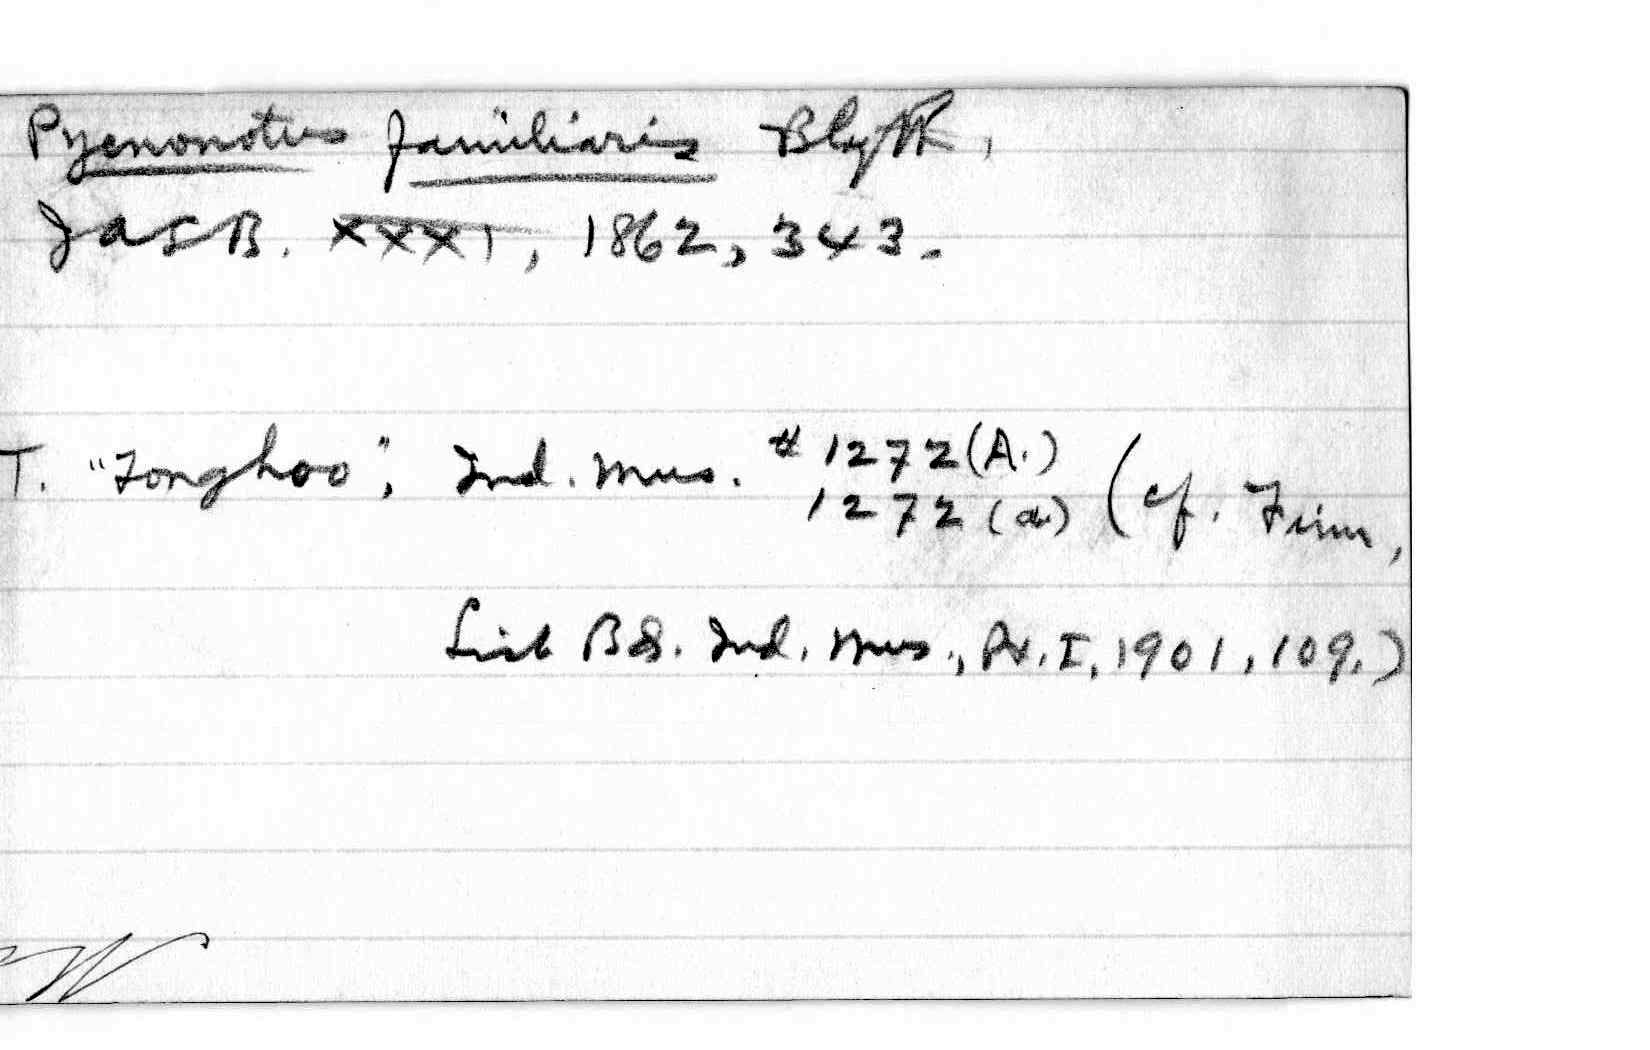 Pycnonotus familiaris Blyth,
JASB. XXXI, 1862, 343.
T. "Tonghoo", Ind. Mus. # 1272(A.)
1272 (a.) (cf. Finn,
List Bds. Ind. Mus., Pt. I, 1901, 109.)